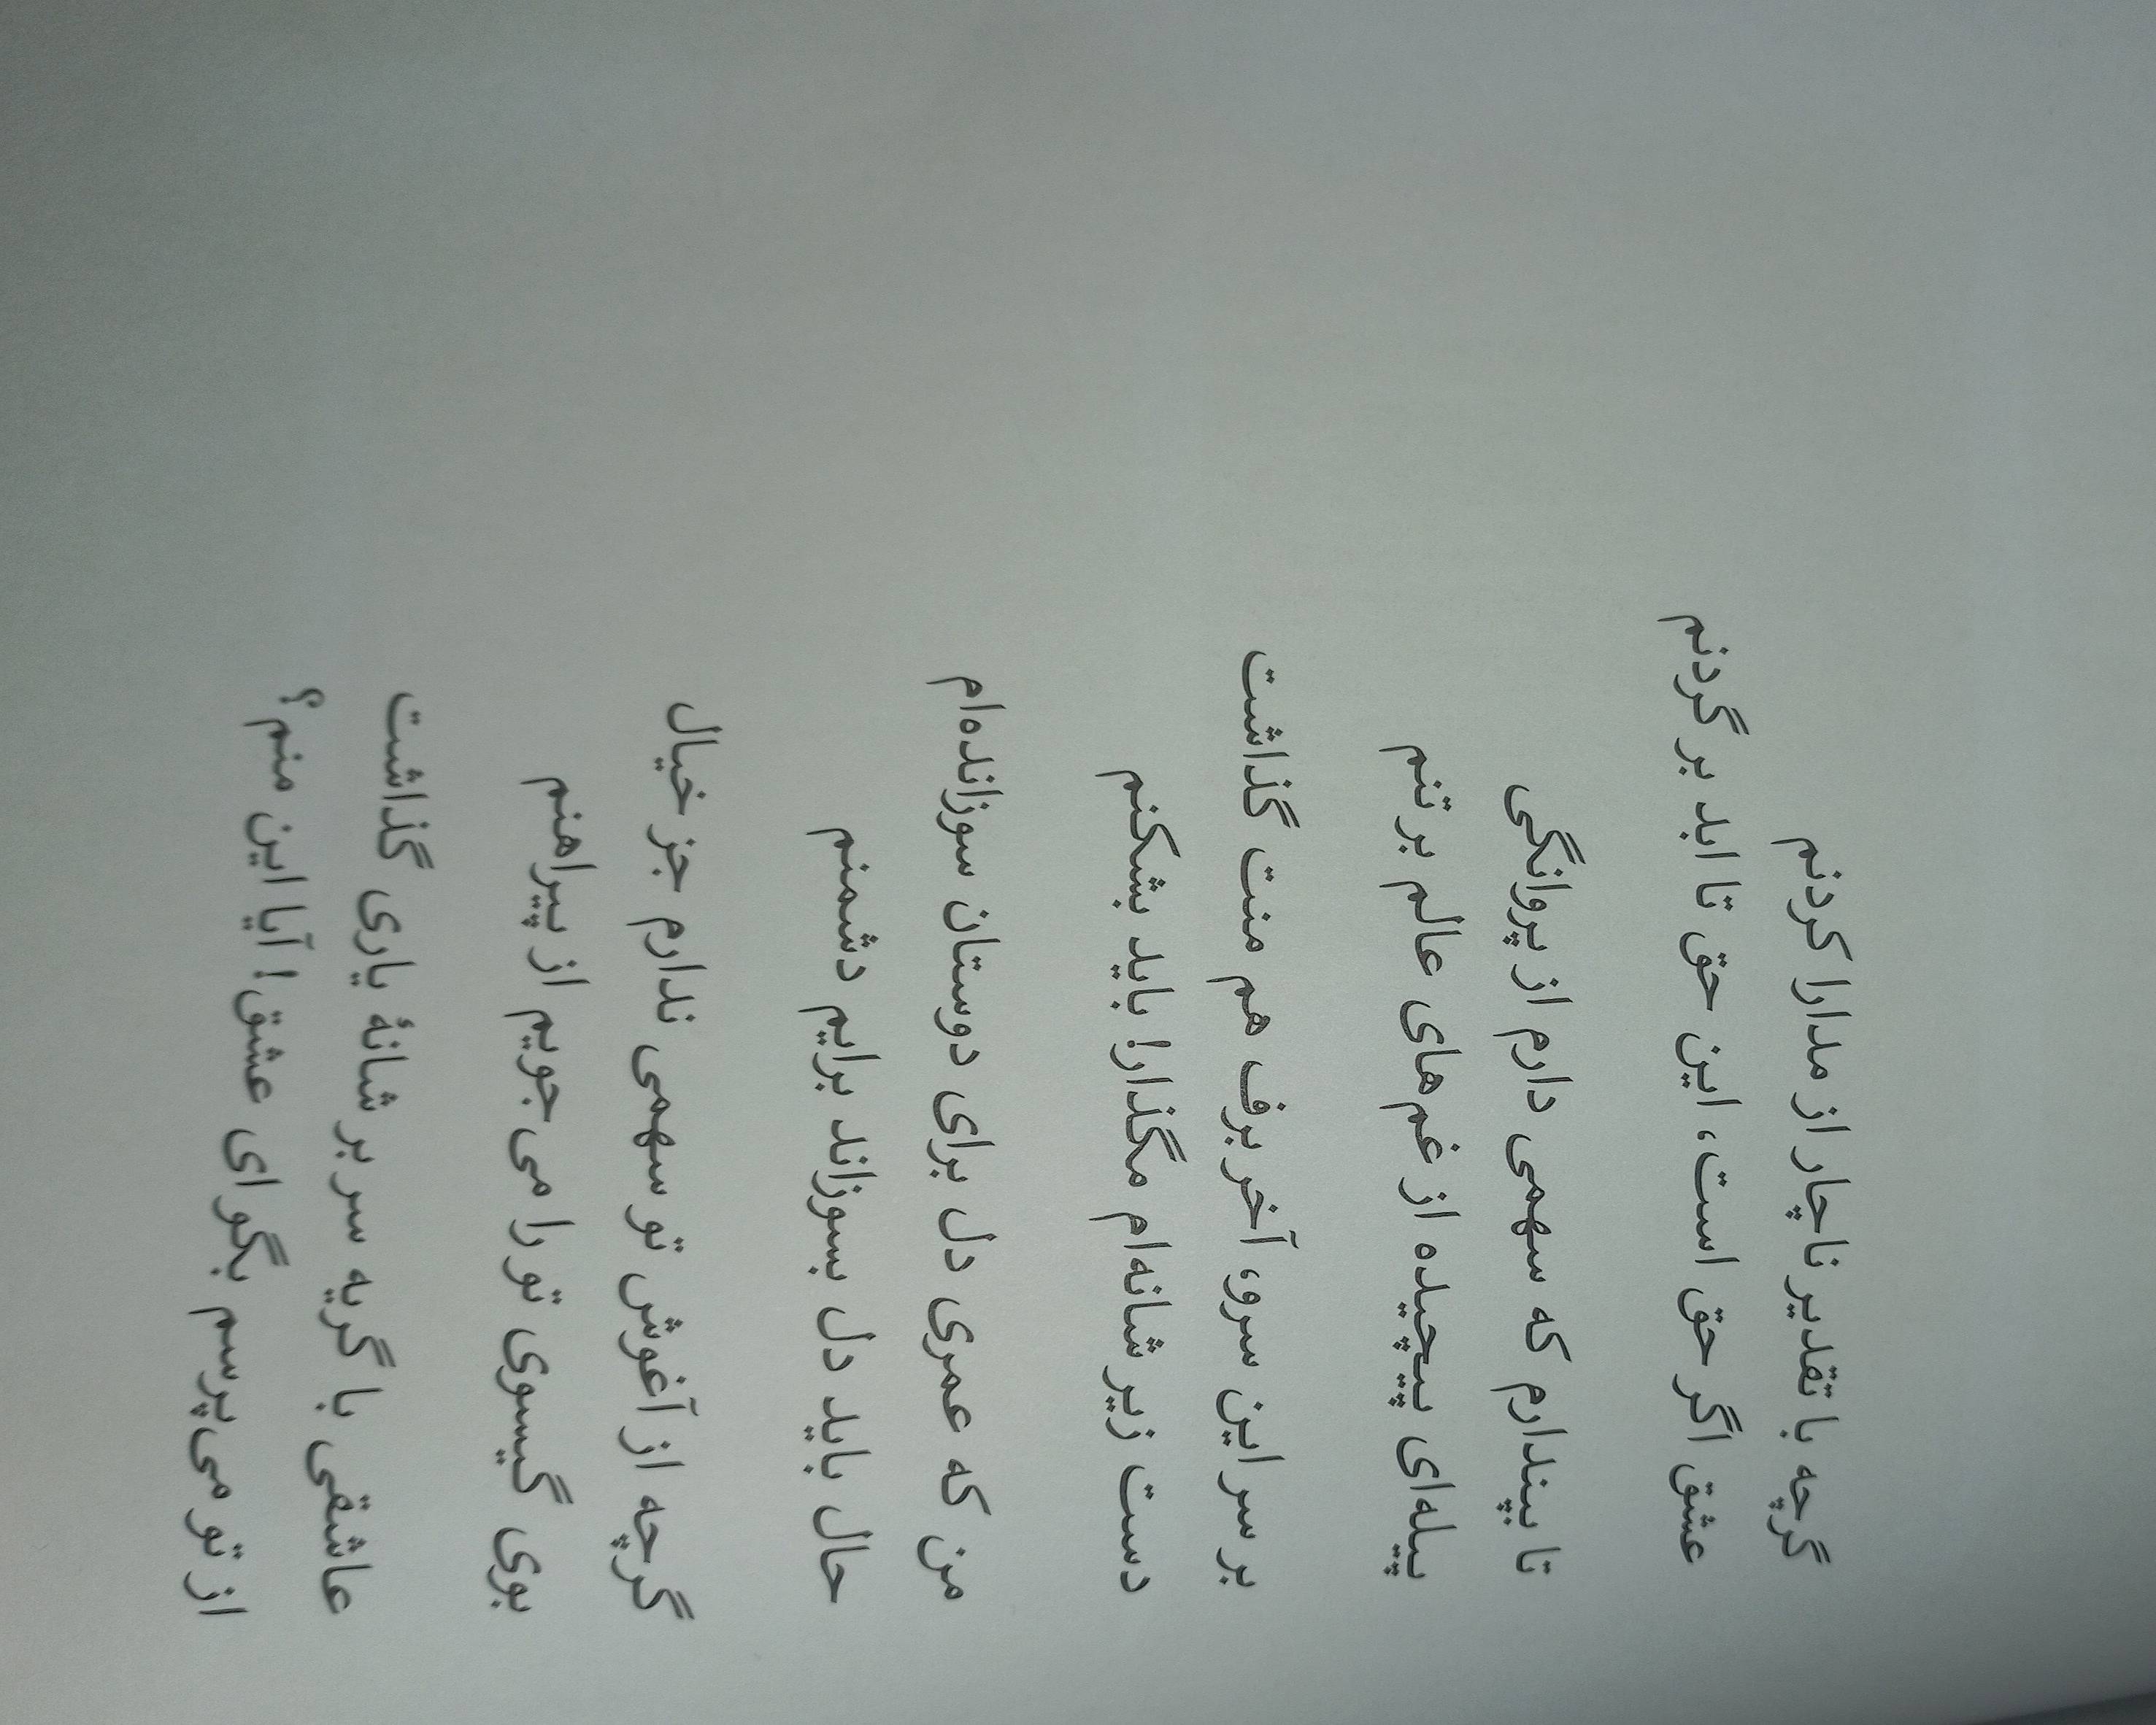 گرچه با تقدیر ناچار از مدارا کردنم
عشق اگر حق است، این حق تا ابد بر گردنم
تا بپندارم که سهمی دارم از پروانگی
پیله‌ای پیچیده از غم‌های عالم بر تنم
بر سر این سرو، آخر برف هم منت گذاشت
دست زیر شانه‌ام مگذار! باید بشکنم
من که عمری دل برای دوستان سوزانده‌ام
حال باید دل بسوزاند برایم دشمنم
گرچه از آغوش تو سهمی ندارم جز خیال
بوی گیسوی تو را می‌جویم از پیراهنم
عاشقی با گریه سر بر شانهٔ یاری گذاشت
از تو می‌پرسم بگو ای عشق! آیا این منم؟